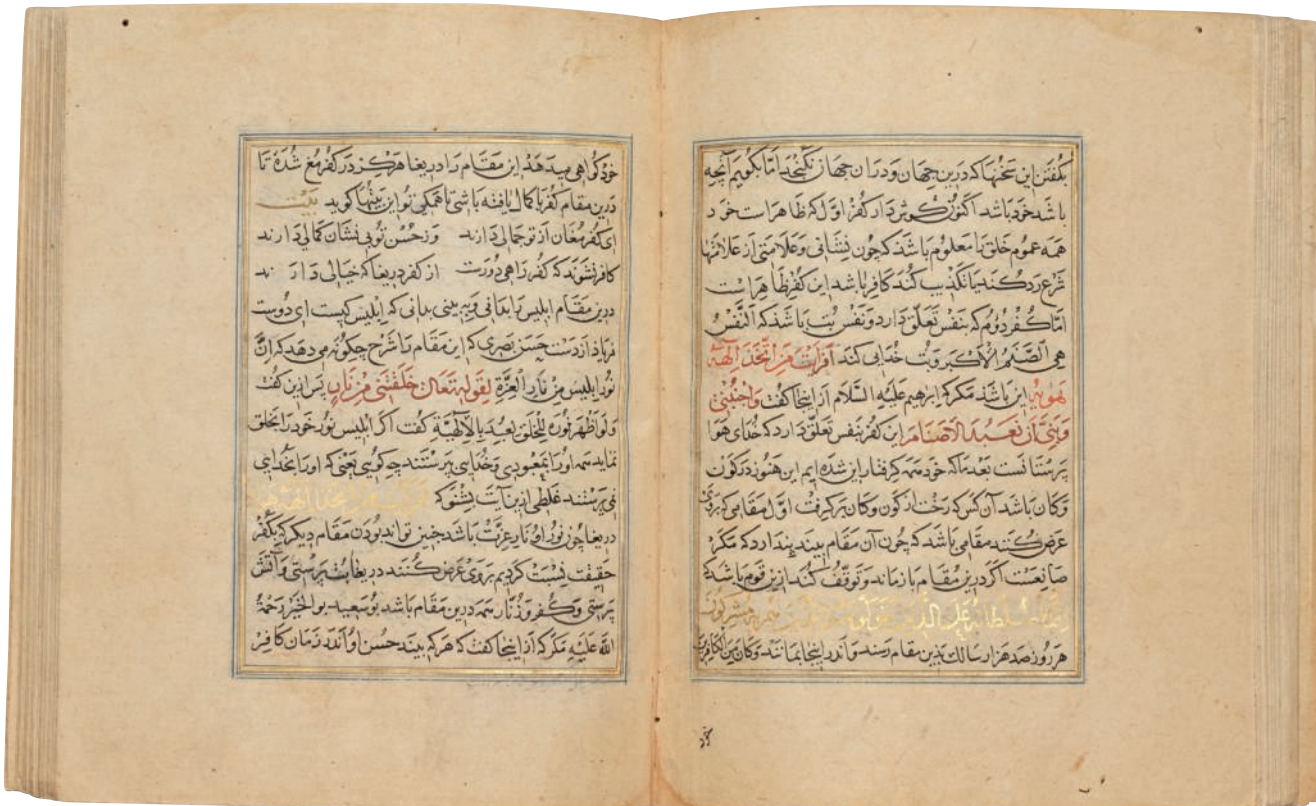 بکفتن این سخنها که درین جهان و دران جهان نکنجد اما بکوییم آنچه
باشد خود باشد اکنون کوش دار کفر اول که ظاهراست خود
همه عموم خلق را معلوم باشد که چون نشانی و علامتی از علامتها
شرع رد کند یا تکذیب کند کافر باشد این کفر ظاهراست
اما کفر دوم که بنفس تعلق دارد و نفس بت باشد که النفس
هی الصنم الاکبر و بت خدایی کند افرایت من اتخذ الهه
هویه این باشد مکر که ابرهیم علیه السلام از اینجا کفت واجنبنی
وبنی ان نعبد الاصنام این کفر بنفس تعلق دارد که خدای هوا
پرستانست بعد ما که خود همه کرفتار این شده ایم این هنوز در کون
و کان باشد آن کس که رخت از کون و کان برکرفت اول مقامی که بروی
عرض کنند مقامی باشد که چون آن مقام بیند پندارد که مکر
صانعست اکر درین مقام بازماند و توقف کند ازین قوم باشد که
انما سلطانه علی الذین یتولونه والذین هم به مشرکون
هر روز صد هزار سالک بدین مقام رسند و اندر اینجا بمانند و کان من الکافرین
خود
خود کواهی میدهد این مقام را دریغا هرکز در کفر مغ شده تا
درین مقام کفر با کمال یافته باشی تا همکی تو این بیتها کوید بیت
ای کفر مغان از تو جمالی دارند وز حسن تو بی نشان کمالی دارند
کافر نشوند که کفر راهی دورست از کفر دریغا که خیالی دارند
درین مقام ابلیس را بدانی و به بینی بدانی که ابلیس کیست ای دوست
فریاد از دست حسن بصری که این مقام را شرح چکونه می دهد که ان
نور ابلیس من نار العزة لقوله تعالی خلقتنی من نار پس ازین کفت
ولو اظهر نوره للخلق لعبد بالالهیة کفت اکر ابلیس نور خود را بخلق
نماید همه او را بمعبودی و خدایی پرستند چه کویی یعنی که او را بخدای
نمی پرستند غلطی ازین آیت بشنو که افرایت من اتخذ الهه هویه
دریغا چون نور او نار عزت باشد چنین تواند بودن مقام دیکر که بکفر
حقیقت نسبت کردیم بروی عرض کنند دریغا بت پرستی و آتش
پرستی و کفر و زنار همه درین مقام باشد بوسعید بوالخیر رحمة
الله علیه مکر که از اینجا کفت که هر که بیند حسن او اندر زمان کافر